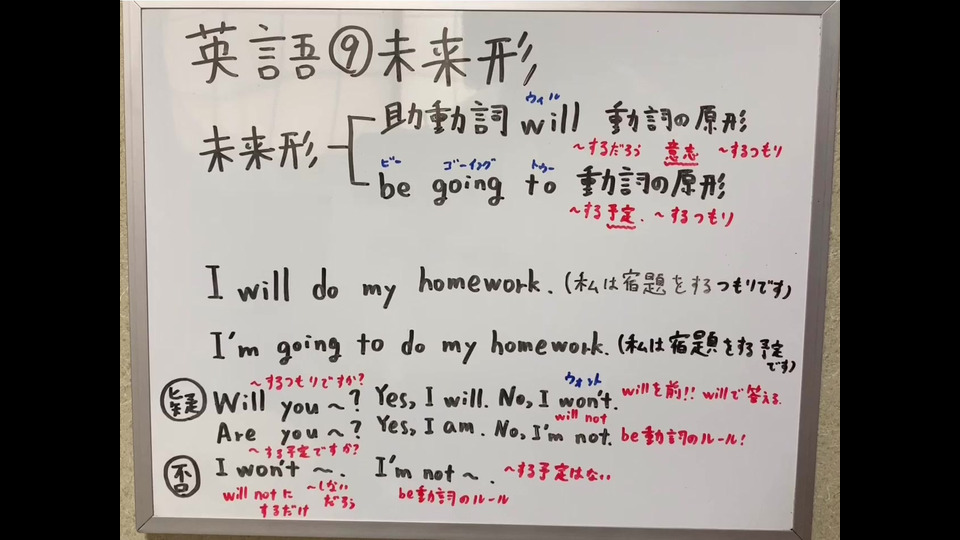 英語⑨未来形
未来形
ウィル
助動詞 will 動詞の原形
〜するだろう 意志 〜するつもり
ビー ゴーイング トゥー
be going to 動詞の原形
〜する予定. 〜するつもり
I will do my homework. (私は宿題をするつもりです)
I'm going to do my homework. (私は宿題をする予定です)
〜するつもりですか?
ウォント
疑 Will you 〜? Yes, I will. No, I won't. willを前!! willで答える.
will not
Are you 〜? Yes, I am. No, I'm not. be動詞のルール!
〜する予定ですか?
否 I won't 〜. I'm not 〜. 〜する予定はない
will notにするだけ 〜しないだろう be動詞のルール